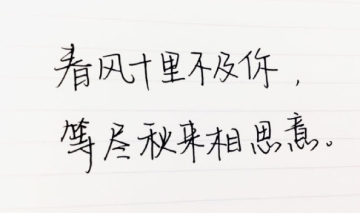 春风十里不及你，
等尽秋来相思意。